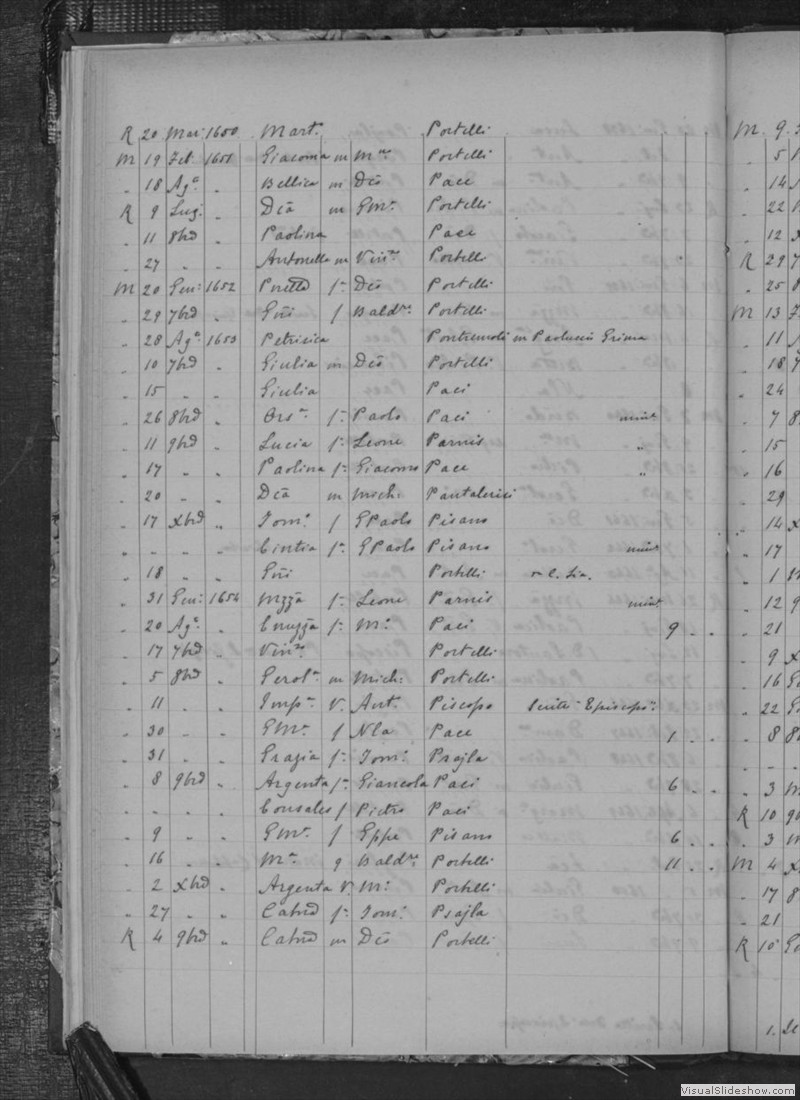 R 20 Mar: 1650 Mart.ª Portelli
M 19 Feb 1651 Giacoma m M.ro Portelli
" 18 Ag.º " Bellica m Dco Pace
R 9 Lug: " Dca m GM.ª Portelli
" 11 8brd " Paolina Pace
" 27 " " Antonella m Vin.zo Portelli
M 20 Gen: 1652 f.ª Dco Portelli
" 29 7brd " Gni f Bald.re Portelli
" 28 Ag.º 1653 Petrisica Pontremoli m Paoluccio Grima
" 10 7brd " Giulia m Dco Portelli
" 15 " " Giulia Paci
" 26 8brd " Ors.ª f.ª Paolo Paci min.
" 11 9brd " Lucia f.ª Leone Parnis "
" 17 " " Paolina f.ª Giacomo Pace "
" 20 " " Dca m Mich: Pantalerisi
" 17 Xbrd " Tom.º f GPaolo Pisano
" " " " Cintia f.ª GPaolo Pisano min.
" 18 " " Gni Portelli
" 31 Gen: 1654 f.ª Leone Parnis min.
" 20 Ag.º " f.ª M.º Paci 9 " "
" 17 7brd " Vin.zo Portelli
" 5 8brd " Gerol.ª m Mich: Portelli
" 11 " " Imp.ª V. Ant.º Piscopo
" 30 " " GM.ª f Nla Pace 1 " "
" 31 " " Grazia f.ª Tom.º Psajla
" 8 9brd " Argenta f.ª Giancola Paci 6 " "
" " " " Consales f Pietro Paci
" 9 " " GM.ª f Gppe Pisano 6 " "
" 16 " " M.ª q Bald.re Portelli 11 " "
" 2 Xbrd " Argenta V. M.º Portelli
" 27 " " Catnd f.ª Tom.º Psajla
R 4 9brd " Catnd m Dco Portelli
M. 9
" 5
" 14
" 22
" 12
R 29
" 25
M 13
" 11
" 18
" 24
" 7
" 15
" 16
" 29
" 14
" 17
" 1
" 12
" 21
" 9
" 16
" 22
" 8
" 3
R 10
" 3
M 4
" 17
" 21
R 15
1.
VisualSlideshow.com